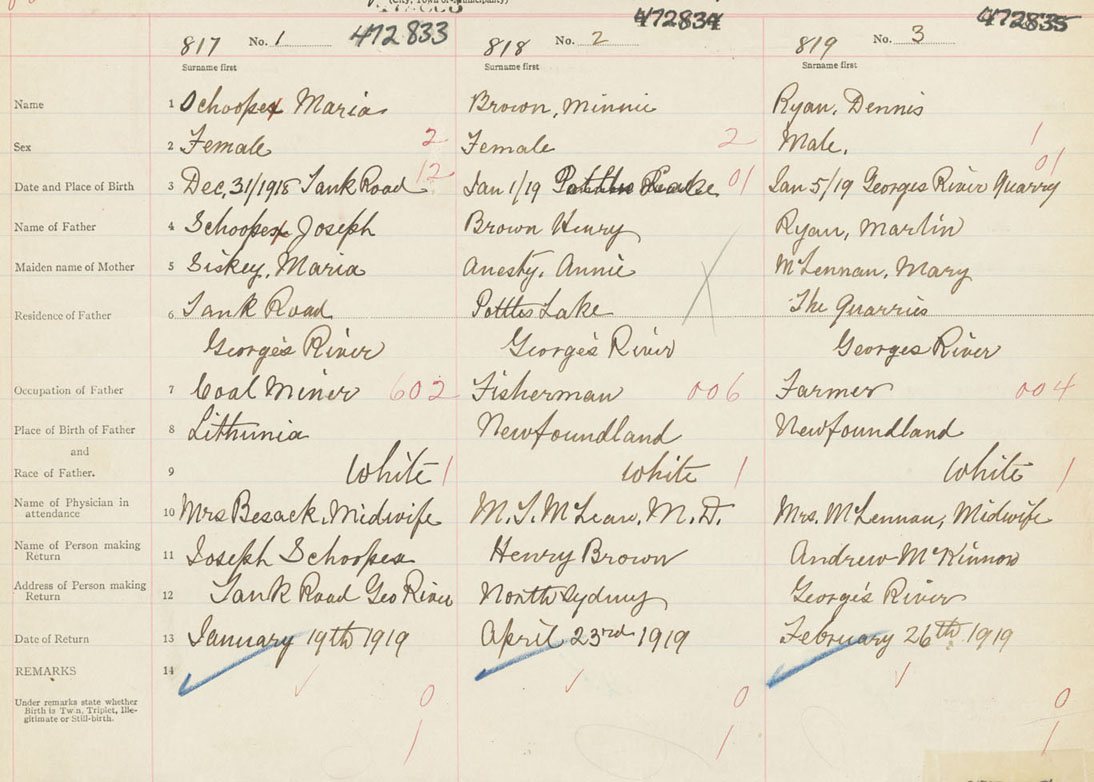 (City, Town or Municipality)
817 No. 1 472833
818 No. 2 472834
819 No. 3 472835
Surname first Surname first Surname first
Name 1 Schoopex Maria Brown, Minnie Ryan, Dennis
Sex 2 Female 2 Female 2 Male. 1
Date and Place of Birth 3 Dec, 31/1918 Tank Road 12 Jan 1/19 Pottles Lake 01 Jan 5/19 Georges River Quarry 01
Name of Father 4 Schoopex Joseph Brown Henry Ryan, Martin
Maiden name of Mother 5 Siskey, Maria Anesty, Annie McLennan, Mary
Residence of Father 6 Tank Road Pottles Lake The Quarries
George's River George's River Georges River
Occupation of Father 7 Coal Miner 602 Fisherman 006 Farmer 004
Place of Birth of Father 8 Lithunia Newfoundland Newfoundland
and
Race of Father. 9 White 1 White 1 White 1
Name of Physician in
attendance 10 Mrs Besack, Midwife M.T. McLean, M.D. Mrs. McLennan, Midwife
Name of Person making
Return 11 Joseph Schoopex Henry Brown Andrew McKinnon
Address of Person making
Return 12 Tank Road Geo River North Sydney George's River
Date of Return 13 January 19th 1919 April 23rd 1919 February 26th 1919
REMARKS 14
Under remarks state whether
Birth is Twin, Triplet, Ille-
gitimate or Still-birth.
0 0 0
1 1 1